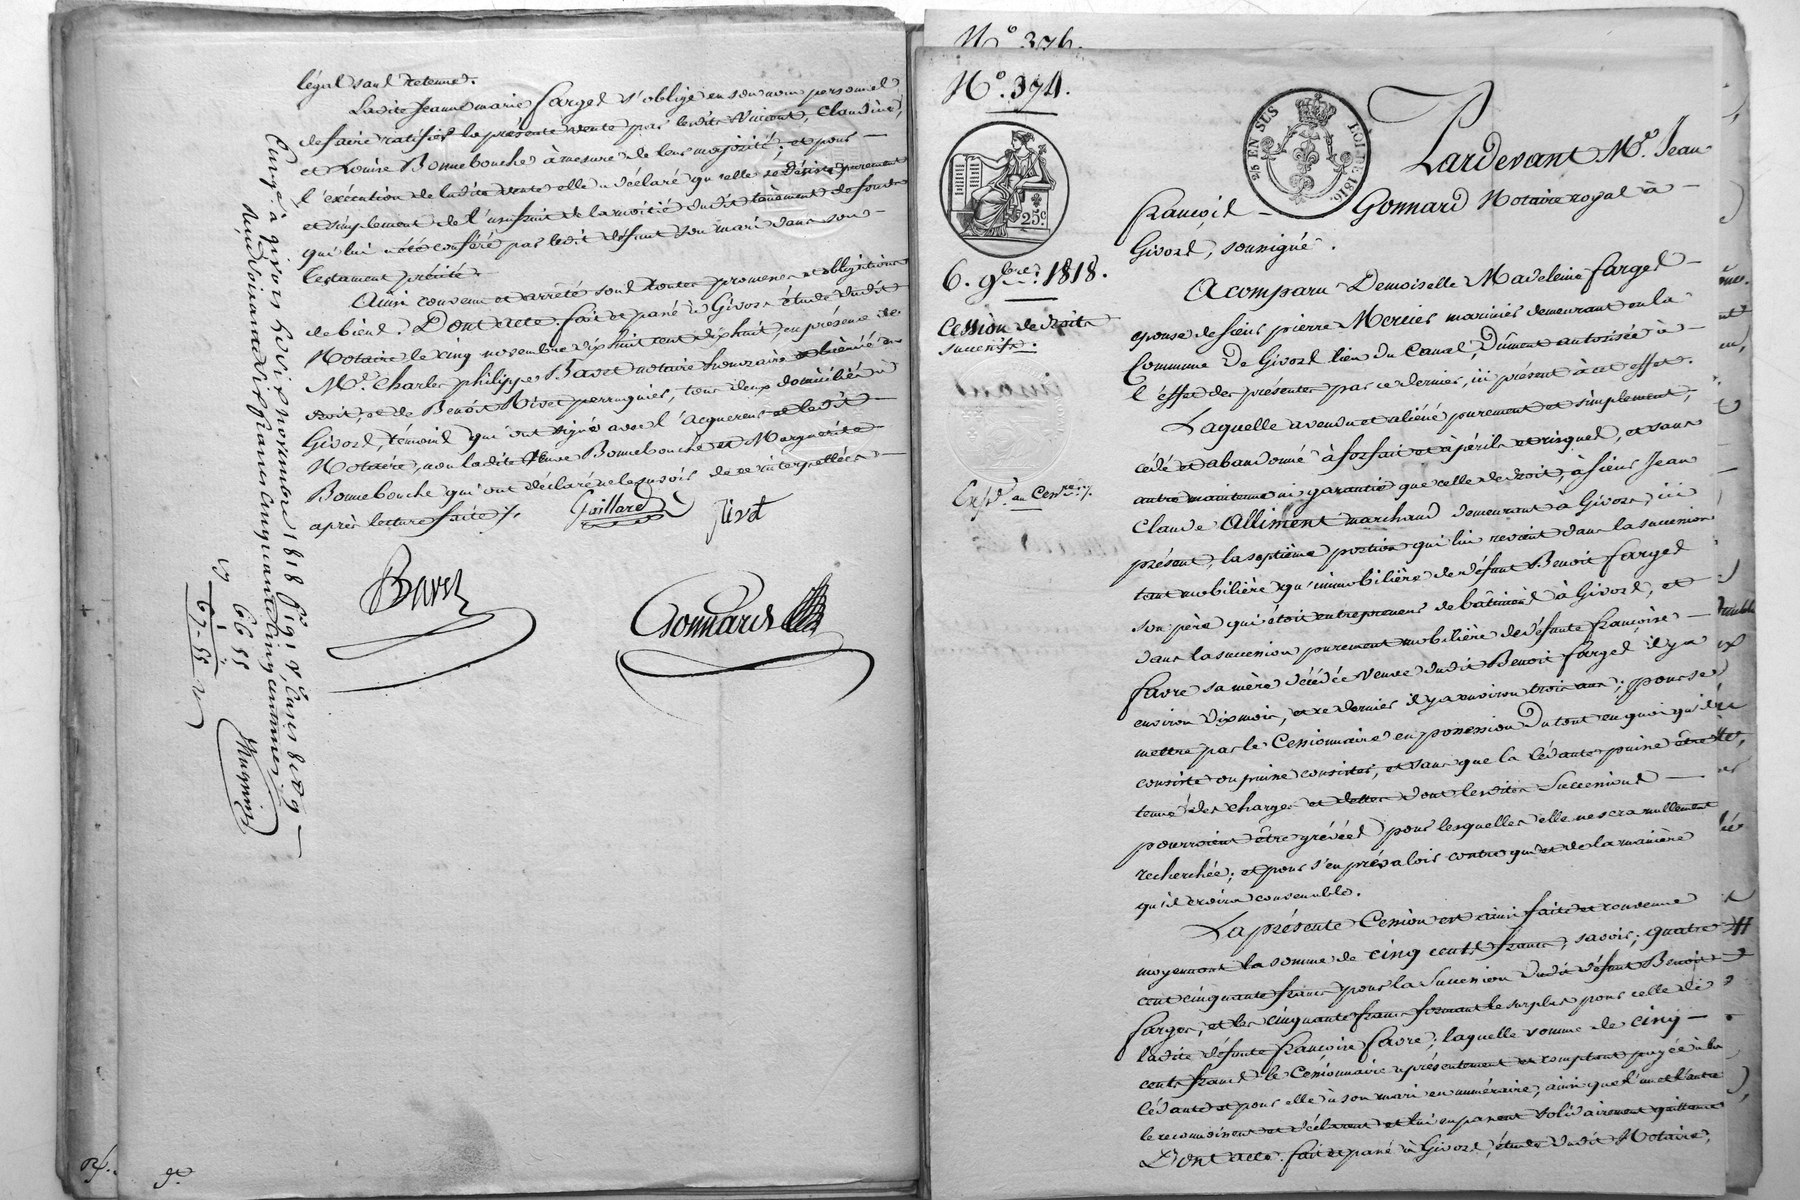 légal sans retenue.
Ladite Jeanne marie farges s'oblige en son nom personnel
de faire ratifier la présente vente par lesdits Vincent, Claudine,
et Louise Bonnebouche à mesure de leur majorité; et pour
l'exécution de ladite vente elle a déclaré qu'elle se désiste purement
et simplement de l'usufruit de la moitié dudit tènement de fonds
qui lui a été conféré par ledit défunt son mari dans son
testament précité.
Ainsi convenu et arrêté sous toutes promesses et obligations
de biens. Dont acte. fait et passé à Givors étude dudit
Notaire le cinq novembre dix huit cent dix huit, en présence de
Me. Charles philippe Bavet notaire honoraire et licencié en
droit, et de Benoît Rivet perruquier, tous deux domiciliés à
Givors, témoins qui ont signé avec l'acquereur et ledit
Notaire, non ladite veuve Bonnebouche et Marguerite
Bonnebouche qui ont déclaré ne le savoir de ce interpellées
après lecture faite ./.
Gaillard
Rivet
Bavet
Gonnard
Enregé à givors le dix novembre 1818 fo. 191 vo, Cases 8 et 9
cinquante cinq centimes
66 55
67-55
No. 376.
No. 374.
25c
2/5 EN SUS
LOI DE 1816
6. 9bre. 1818.
Cession de droits
successifs.
Pardevant Me. Jean
françois Gonnard Notaire royal à
Givors, soussigné.
A comparu Demoiselle Madeleine farges
épouse de sieur pierre Mercier marinier demeurant en la
Commune de Givors lieu du Canal, Dûment autorisée à
l'effet des présentes par ce dernier, ici présent à cet effet.
Laquelle a vendu et aliéné purement et simplement,
cédé et abandonné à forfait et à périls et risques, et sans
autre maintenue ni garantie que celle de droit, à sieur Jean
Claude Alliment marchand demeurant à Givors, ici
présent, la septième portion qui lui revient dans la succession
tant mobilière qu'immobilière de défunt Benoît farges
son père qui étoit entrepreneur de bâtimens à Givors, et
dans la succession purement mobilière de défunte françoise
favre sa mère décédée veuve dudit Benoît farges il y a
environ dix mois, et ce dernier il y a environ trois ans; pour se
mettre par le Cessionnaire en possession du tout en quoi qu'il
consiste ou puisse consister, et sans que la cédante puisse être
tenue des charges et dettes dont lesdites Successions
pourroient être grévées pour lesquelles elle ne sera nullement
recherchée; et pour s'en prévaloir contre qui et de la manière
qu'il croira convenable.
La présente Cession est ainsi faite et convenue
moyennant la somme de cinq cents francs, savoir; quatre
cent cinquante francs pour la Succession dudit défunt Benoît
farges, et les cinquante francs formant le surplus pour celle de
ladite défunte françoise favre; laquelle somme de cinq
cents francs le Cessionnaire a présentement et comptant payée à la
cédante et pour elle à son mari en numéraire, ainsi que l'un et l'autre
le reconnoissent et déclarent et lui en passent solidairement quittance
Dont acte. fait et passé à Givors, étude dudit Notaire,